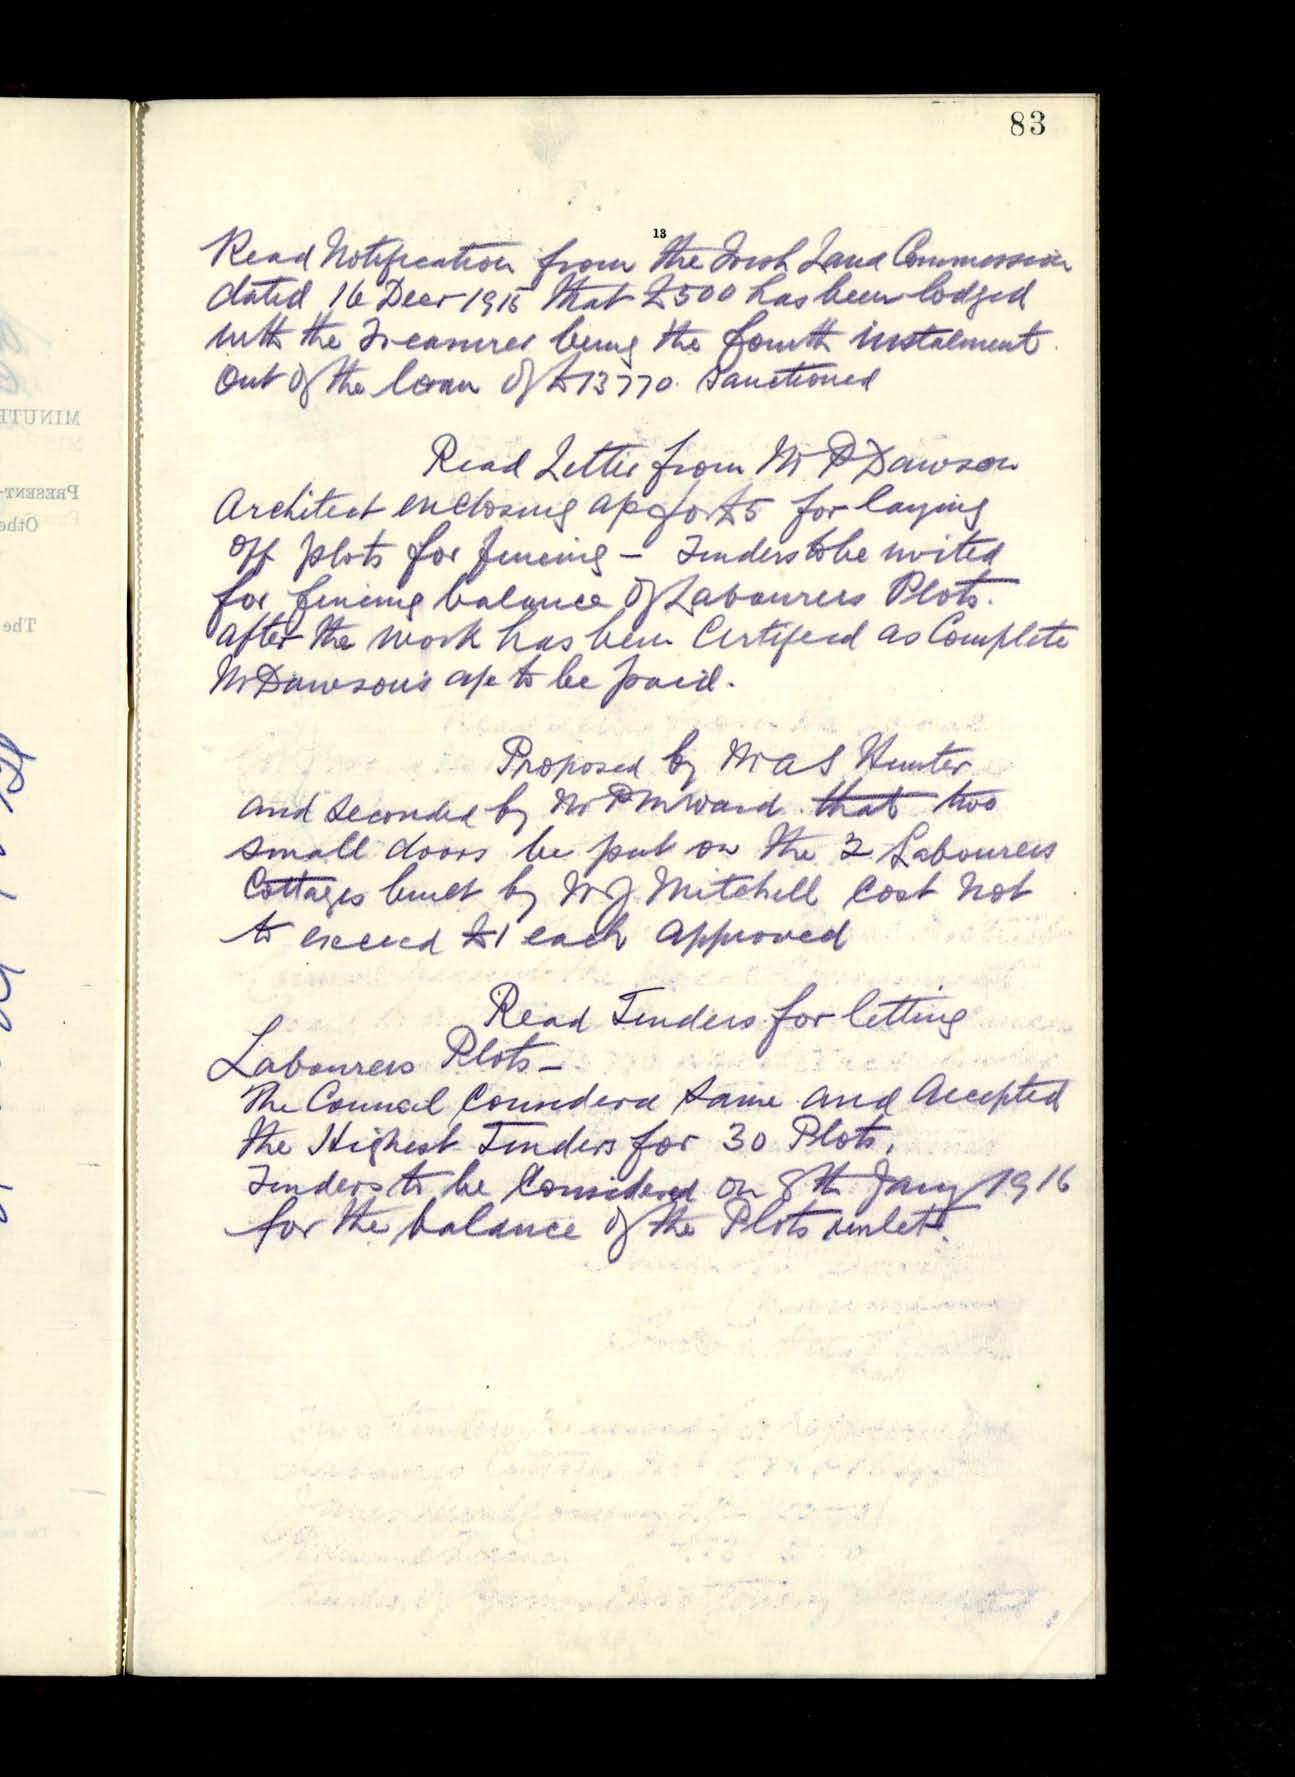 83
13
Read Notification from the Irish Land Commission
dated 16 Decr 1915 that £500 has been lodged
with the Treasurer being the fourth instalment
out of the loan of £13770. Sanctioned
Read Letter from Mr P Dawson
Architect enclosing a/c for £5 for laying
off plots for fencing – Tenders to be invited
for fencing balance of Labourers Plots.
after the work has been Certified as Complete
Mr Dawson's a/c to be paid.
Proposed by Mr A S Hunter
and seconded by Mr P McWard that two
small doors be put on the 2 Labourers
Cottages built by W J Mitchell Cost not
to exceed £1 each approved
Read Tenders for letting
Labourers Plots –
The Council Considered same and Accepted
the Highest Tenders for 30 Plots.
Tenders to be Considered on 8th Jany 1916
for the balance of the Plots unlet.
MINUTE
PRESENT-
Othe
The